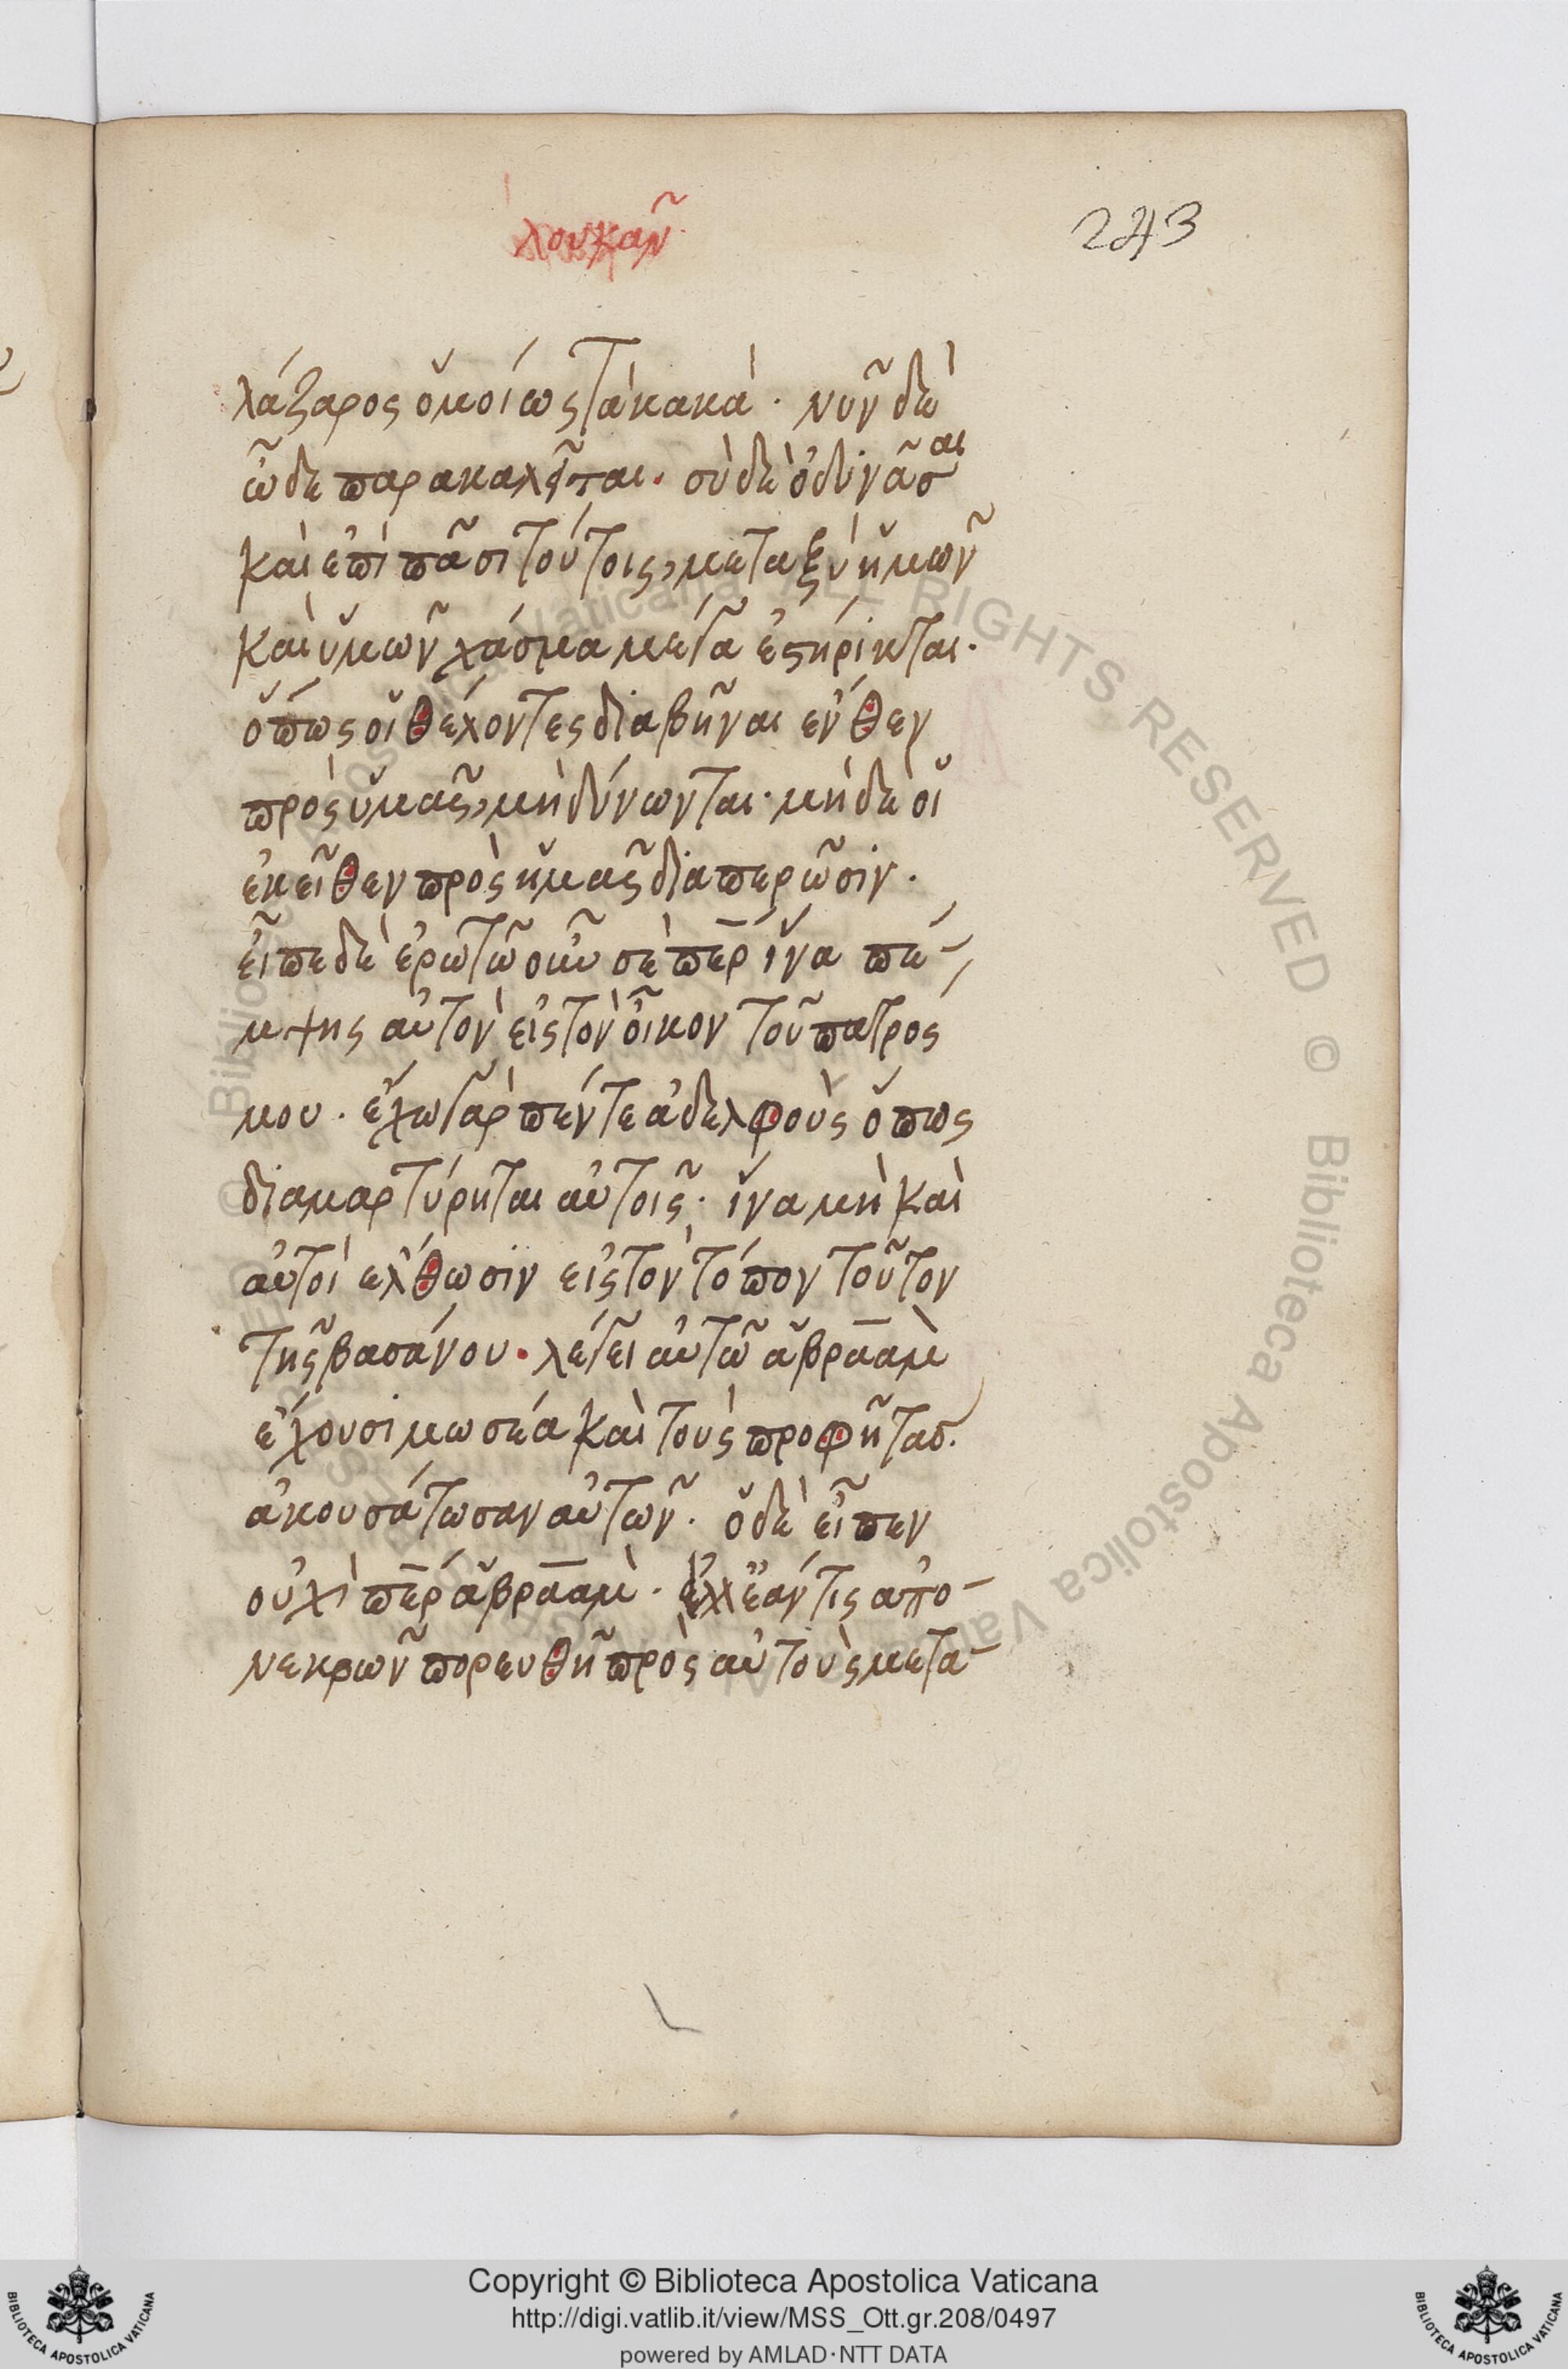 λουκᾶν
243
λάζαρος ὁμοίως τὰ κακά · νῦν δὲ
ὧδε παρακαλεῖται · σὺ δὲ ὀδυνᾶσαι
καὶ ἐπὶ πᾶσι τούτοις, μεταξὺ ἡμῶν
καὶ ὑμῶν χάσμα μέγα ἐστήρικται ·
ὅπως οἱ θέλοντες διαβῆναι ἔνθεν
πρὸς ὑμᾶς, μὴ δύνωνται · μὴ δὲ οἱ
ἐκεῖθεν πρὸς ἡμᾶς διαπερῶσιν ·
εἶπε δὲ ἐρωτῶ οὖν σὲ περ ἵνα πέ-
μψης αὐτὸν εἰς τὸν οἶκον τοῦ πατρός
μου · ἔχω γὰρ πέντε ἀδελφοὺς ὅπως
διαμαρτύρηται αὐτοῖς · ἵνα μὴ καὶ
αὐτοὶ ἔλθωσιν εἰς τὸν τόπον τοῦτον
τῆς βασάνου · λέγει αὐτῶ ἀβραὰμ
ἔχουσι μωσέα καὶ τοὺς προφήτας.
ἀκουσάτωσαν αὐτῶν · ὁ δὲ εἶπεν
οὐχὶ περ ἀβραὰμ · ἀλλ' ἐάν τις ἀπο-
νεκρῶν πορευθῆ πρὸς αὐτοὺς μετα-
Copyright © Biblioteca Apostolica Vaticana
http://digi.vatlib.it/view/MSS_Ott.gr.208/0497
powered by AMLAD·NTT DATA
BIBLIOTECA APOSTOLICA VATICANA
BIBLIOTECA APOSTOLICA VATICANA